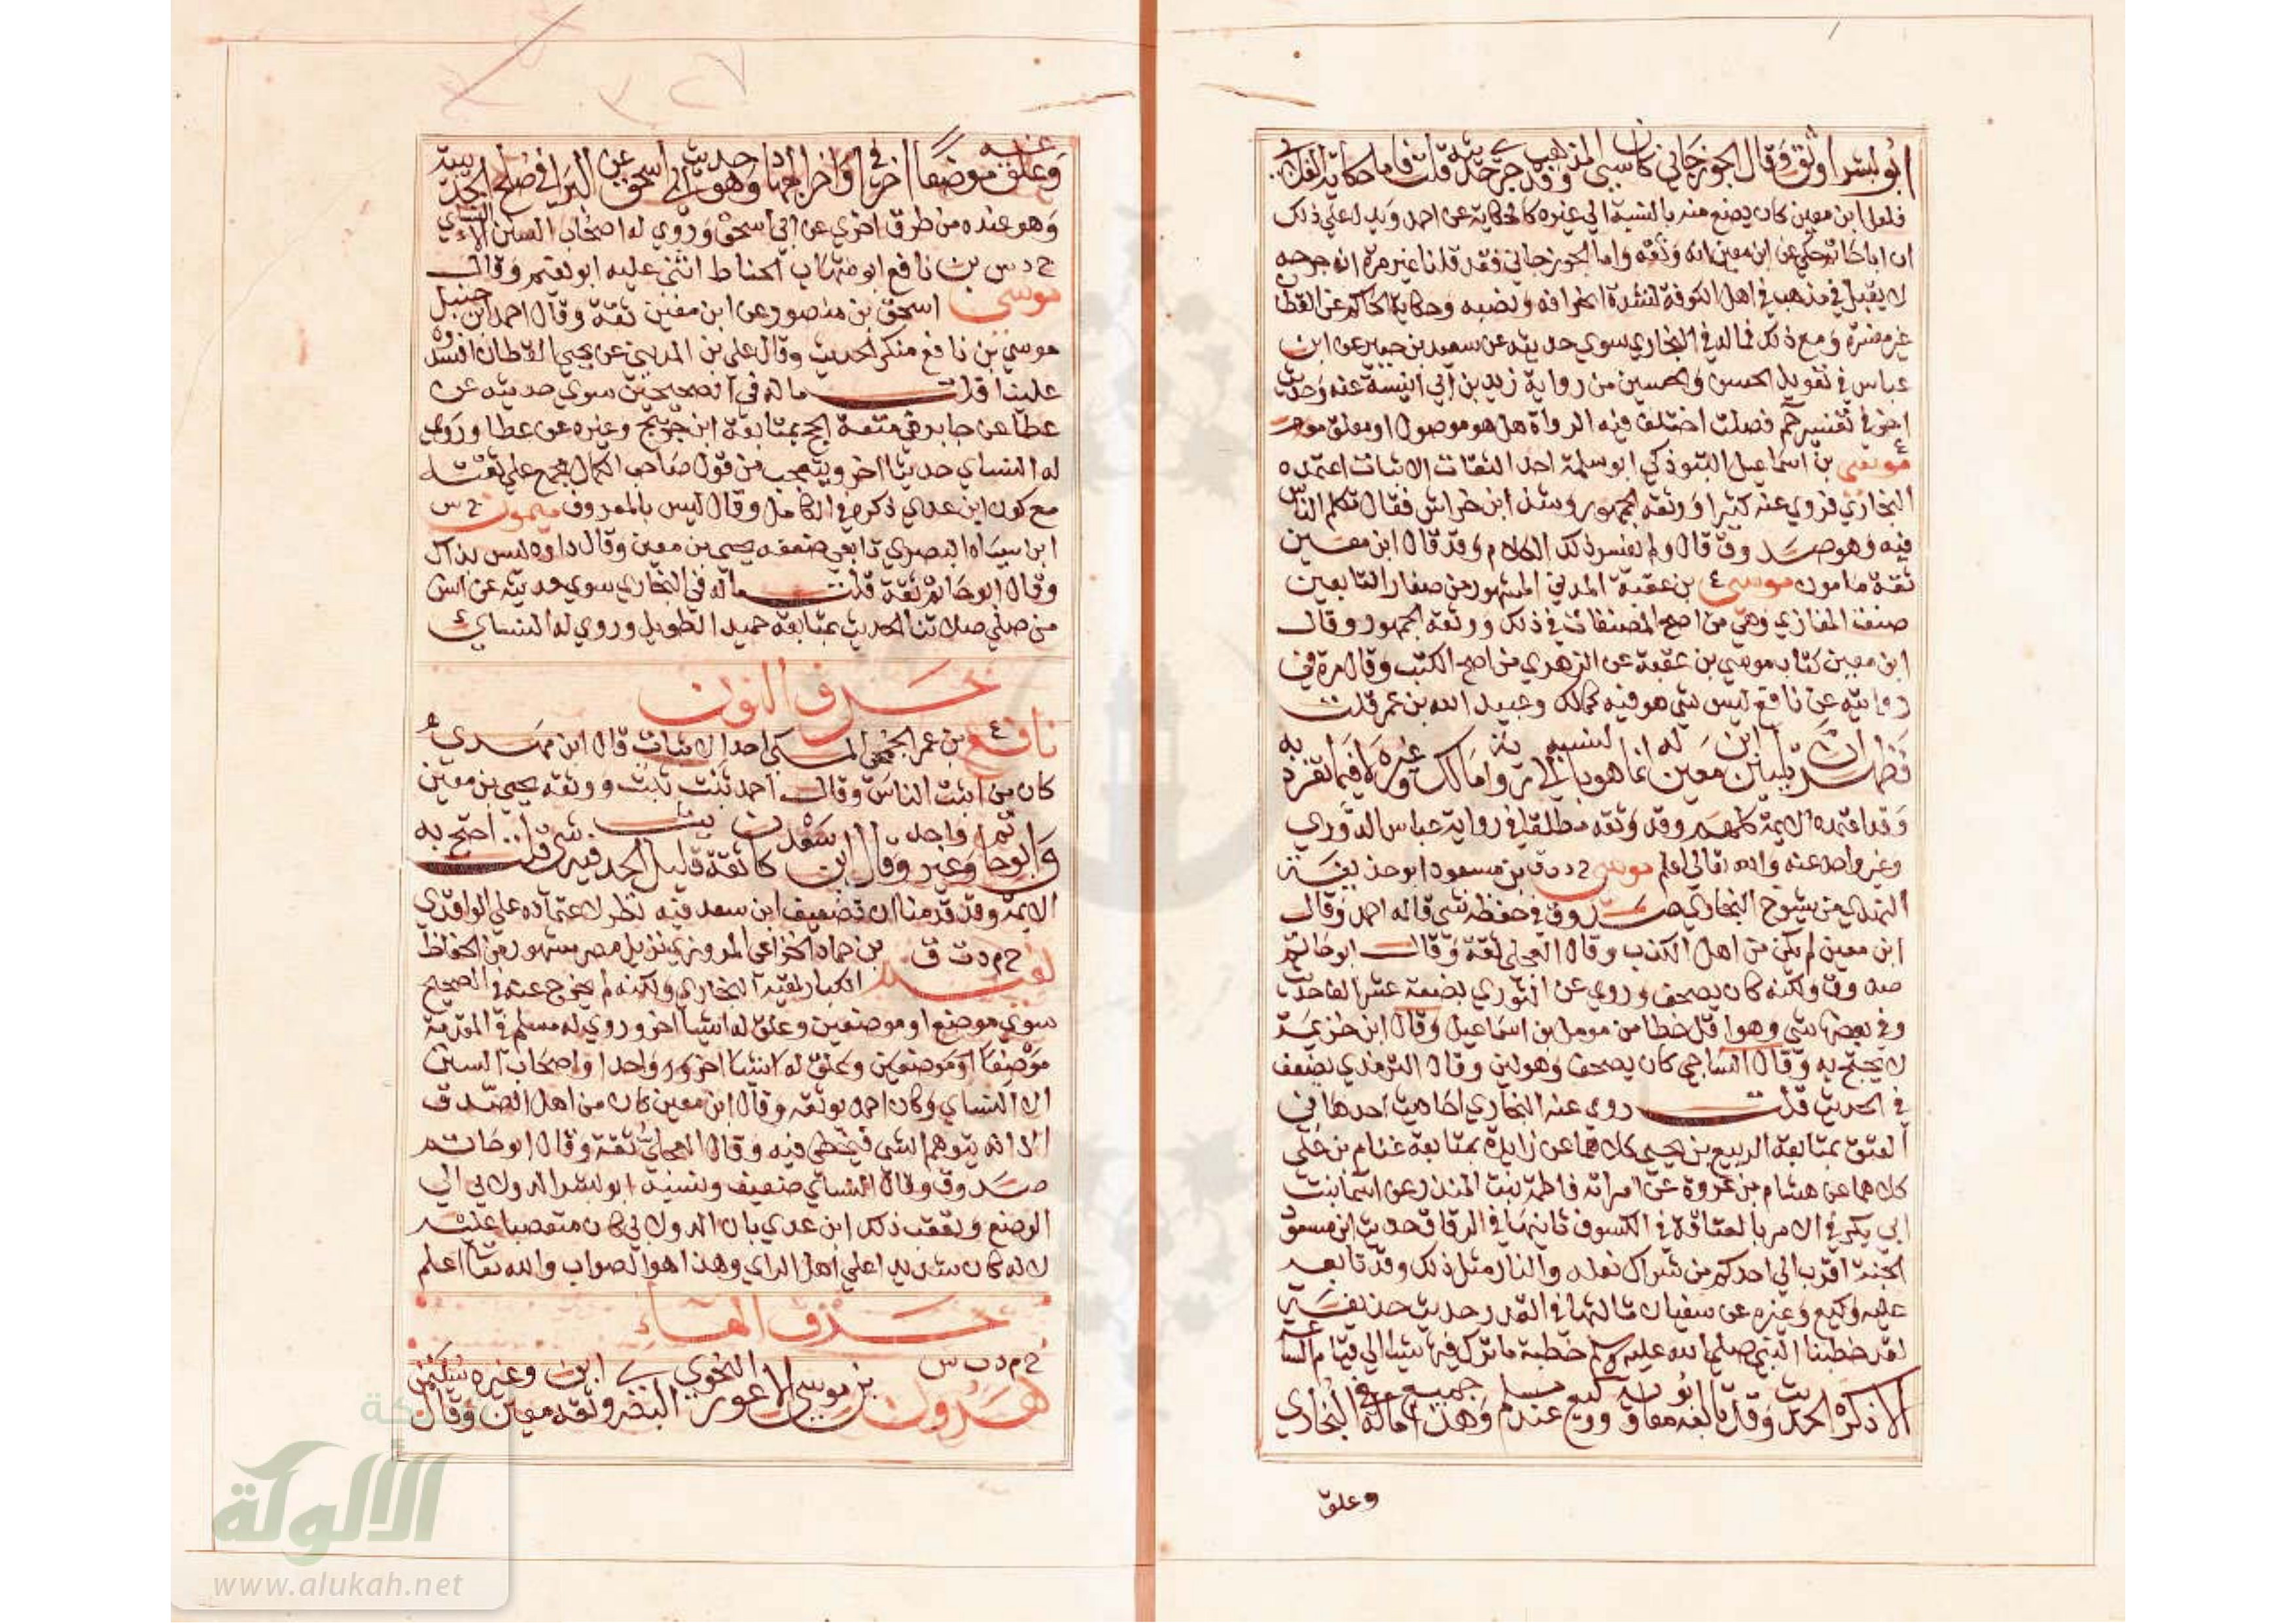 ابو بشر اوثق وقال الجوزجاني كان سيئ المذهب وقد جرحديثه قلت فاما حكاية الغلابي
فلعل ابن معين كان يضع منه بالنسبة الي غيره كالحكاية عن احمد ويدل علي ذلك
ان ابا حاتم حكي عن ابن معين انه وثقه واما الجوزجاني فقد قلنا غير مرة ان جرحه
لا يقبل في مذهب في اهل الكوفة لشدة انحرافه ونصبه وحكاية الحاكم عن القطان
غير مفسرة ومع ذلك فما له في البخاري سوي حديثه عن سعيد بن جبير عن ابن
عباس في تعويذ الحسن والحسين من رواية زيد بن ابي انيسة عنه وحديث
اخر في تفسير حم فصلت اختلف فيه الرواة هل هو موصول او معلق
موسى ع بن اسماعيل التبوذكي ابو سلمة احد الثقات الاثبات اعتمده
البخاري فروي عنه كثيرا ووثقه الجمهور وشذ ابن خراش فقال تكلم الناس
فيه وهو صدوق قال ولم يفسر ذلك الكلام وقد قال ابن معين
ثقة مامون موسى ع بن عقبة المدني المشهور من صغار التابعين
صنف المغازي وهي من اصح المصنفات في ذلك ووثقه الجمهور وقال
ابن معين كتاب موسي بن عقبة عن الزهري من اصح الكتب وقال مرة في
روايته عن نافع ليس شي هو فيه كمالك وعبيد الله بن عمر قلت
فظهر ان تليين ابن معين له انما هو بالنسبة الي رواية مالك وغيره لا فيما تفرد به
وقد اعتمده الايمة كلهم وقد وثقه مطلقا في رواية عباس الدوري
وغير واحد عنه والله تعالي اعلم موسى خ د ت ق بن مسعود ابو حذيفة
النهدي من شيوخ البخاري صدوق في حفظه شي قاله احمد وقال
ابن معين لم يكن من اهل الكذب وقال العجلي ثقة وقال ابو حاتم
صدوق ولكنه كان يصحف وروي عن الثوري بضعة عشر الف حديث
وفي بعضها شي وهو اقل خطا من مومل بن اسماعيل وقال ابن خزيمة
لا يحتج به وقال الساجي كان يصحف وهو لين وقال الترمذي يضعف
في الحديث قلت روي عنه البخاري احاديث احدها في
العتق بمتابعة الربيع بن يحيى كلاهما عن زايدة بمتابعة عثام بن علي
كلاهما عن هشام بن عروة عن امراته فاطمة بنت المنذر عن اسما بنت
ابي بكر في الامر بالعتاقة في الكسوف ثانيها في الرقاق حديث ابن مسعود
الجنة اقرب الي احدكم من شراك نعله والنار مثل ذلك وقد تابعه
عليه وكيع وغيره عن سفيان ثالثها في القدر حديث حذيفة
لقد خطبنا النبي صلي الله عليه وسلم خطبة ما ترك فيها شيا الي قيام الساعة
الا ذكره الحديث وقد تابعه ابو معاوية ووكيع عند مسلم وهذا جميع ما له في البخاري
وعلق
وعلق عنه موضعا اخر في اواخر الجهاد وهو حديث ابي اسحق عن البرا في صلح الحديبية
وهو عنده من طرق اخري عن ابي اسحق وروي له اصحاب السنن الا النساي
خ د س بن نافع ابو شهاب الحناط اثنى عليه ابو نعيم وقال
موسى اسحق بن منصور عن ابن معين ثقة وقال احمد ابن حنبل
موسي بن نافع منكر الحديث وقال علي بن المديني عن يحيى القطان افسدوه
علينا قلت ما له في الصحيحين سوي حديثه عن
عطا عن جابر في متعة الحج بمتابعة ابن جريج وغيره عن عطا وروي
له النساي حديثا اخر ويتعجب من قول صاحب الكمال مجمع علي ثقته
مع كون ابن عدي ذكره في الكامل وقال ليس بالمعروف ميمون خ س
ابن سياه البصري تابعي ضعفه يحيى بن معين وقال داود ليس بذاك
وقال ابو حاتم ثقة قلت ما له في البخاري سوي حديثه عن انس
من صلي صلاتنا الحديث بمتابعة حميد الطويل وروي له النساي
حرف النون
نافع ع بن عمر الجمحي المكي احد الاثبات قال ابن مهدي
كان من اثبت الناس وقال احمد ثبت ثبت ووثقه يحيى بن معين
وابو حاتم وغير واحد وقال ابن سعد كان ثقة قليل الحديث فيه شي قلت احتج به
الايمة وقد قدمنا ان تضعيف ابن سعد فيه نظر لاعتماده علي الواقدي
نعيم خ م د ت ق بن حماد الخزاعي المروزي نزيل مصر مشهور من الحفاظ
الكبار لقيه البخاري ولكنه لم يخرج عنه في الصحيح
سوي موضع او موضعين وعلق له اشيا اخر وروي له مسلم في المقدمة
موضعا او موضعين وعلق له اشيا اخر وروي واحدا واصحاب السنن
الا النساي وكان احمد يوثقه وقال ابن معين كان من اهل الصدق
الا انه يتوهم الشي فيخطي فيه وقال العجلي ثقة وقال ابو حاتم
صدوق وقال النساي ضعيف ونسبه ابو بشر الدولابي الي
الوضع وتعقب ذلك ابن عدي بان الدولابي كان متعصبا عليه
لانه كان شديدا علي اهل الراي وهذا هو الصواب والله تعالى اعلم
حرف الهاء
هرون خ م د ت س بن موسي الاعور النحوي البصري وثقه ابن معين وغيره وقال سليمن
الألوكة
www.alukah.net